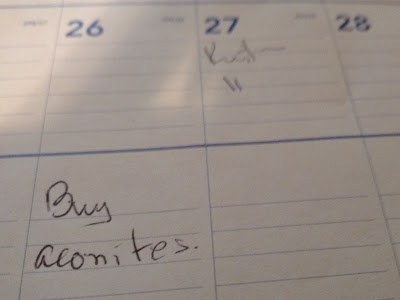 26 27 28
Buy
aconites.